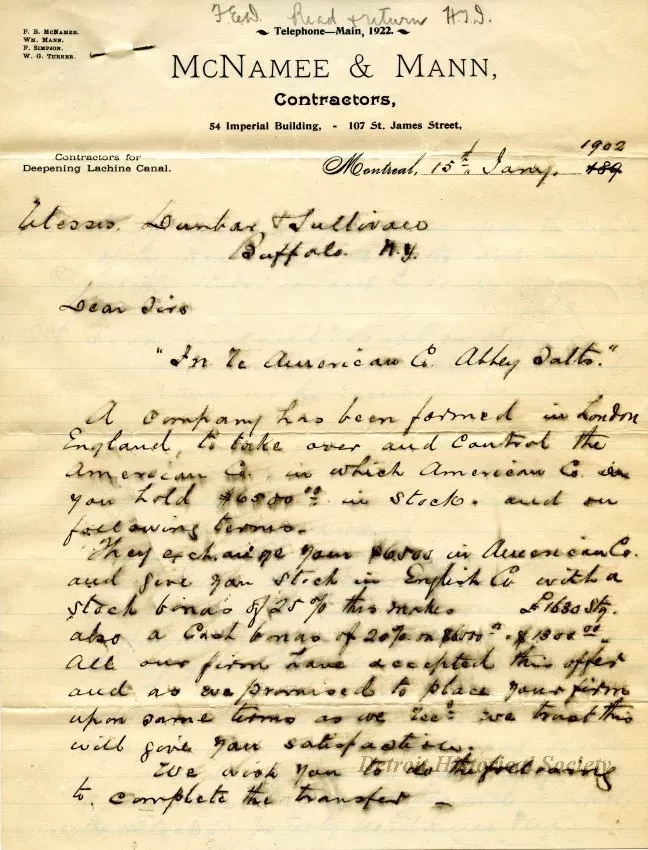 F.E.D. Read & return H.T.D.
Telephone—Main, 1922.
F. B. McNamee.
Wm. Mann.
F. Simpson.
W. G. Turner.
McNamee & Mann,
Contractors,
54 Imperial Building, - 107 St. James Street,
Contractors for
Deepening Lachine Canal.
Montreal, 15th Jany. 1902
189
Messrs. Dunbar & Sullivan
Buffalo. N.Y.
Dear Sirs
"In re American Co. Abbey Salts."
A company has been formed in London
England, to take over and control the
American Co. in which American Co.
you hold $6500 00 in stock. and on
following terms.
They exchange your $6500 in American Co.
and give you stock in English Co with a
stock bonus of 25% this makes £1630 Stg.
also a Cash bonus of 20% on $6500 00 $1300 00.
All our firm have accepted this offer
and as we promised to place your firm
upon same terms as we recd we trust this
will give you satisfaction.
We wish you to do the following
to complete the transfer —
Detroit Historical Society